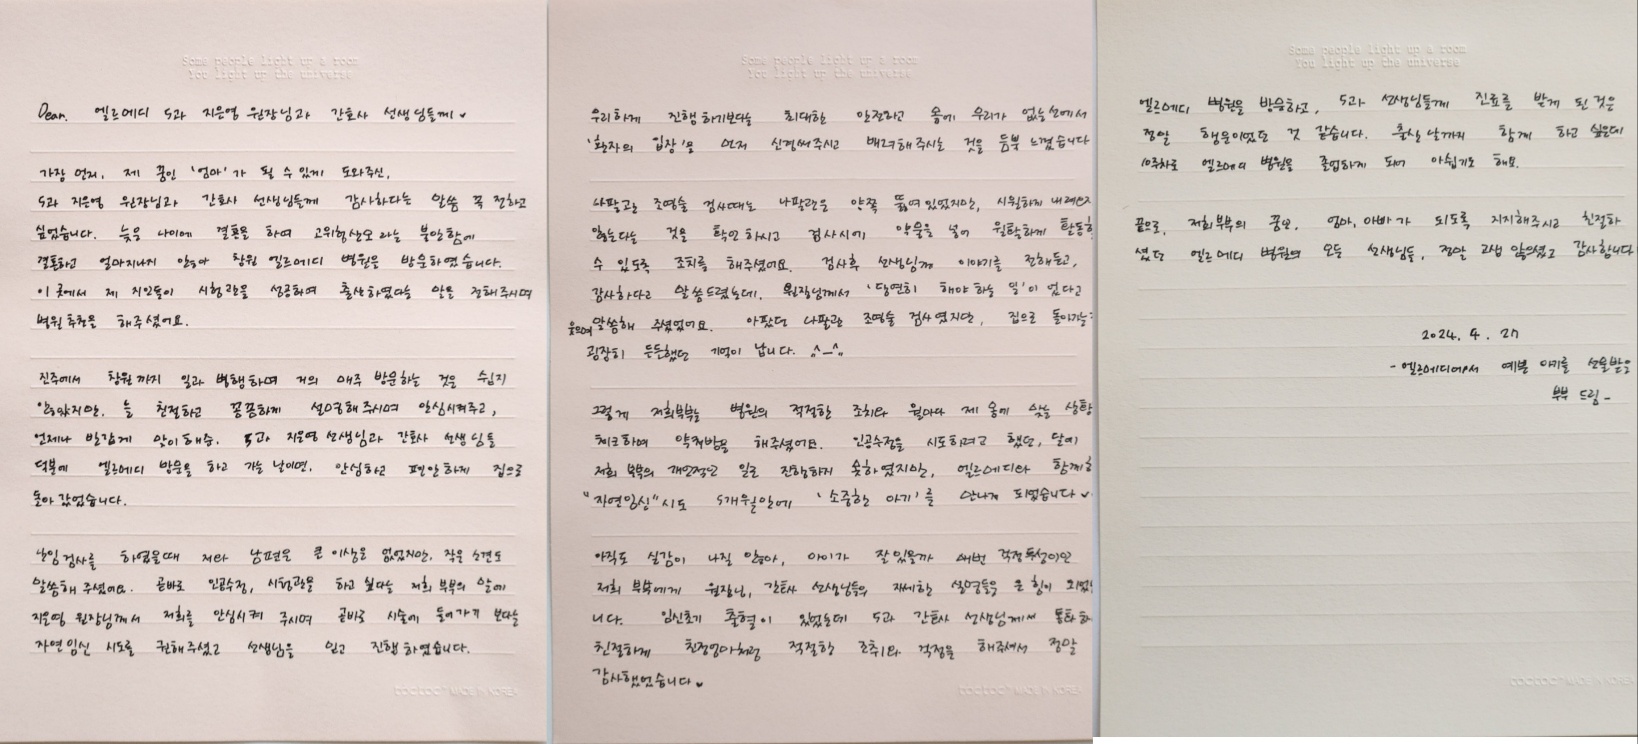 Some people light up a room
You light up the universe
Dear. 엘르메디 5과 지은영 원장님과 간호사 선생님들께♥
가장 먼저, 제 꿈인 '엄마'가 될 수 있게 도와주신,
5과 지은영 원장님과 간호사 선생님들께 감사하다는 말씀 꼭 전하고
싶었습니다. 늦은 나이에 결혼을 하여 고위험산모라는 불안함에
결혼하고 얼마지나지 않아 창원 엘르메디 병원을 방문하였습니다.
이 곳에서 제 지인들이 시험관을 성공하여 출산하였다는 말을 전해주시며
병원 추천을 해주셨어요.
진주에서 창원까지 일과 병행하며 거의 매주 방문하는 것은 쉽지
않았지만. 늘 친절하고 꼼꼼하게 설명해주시며 안심시켜주고,
언제나 반갑게 맞이해준. 5과 지은영 선생님과 간호사 선생님들
덕분에 엘르메디 방문을 하고 가는 날이면, 안심하고 편안하게 집으로
돌아 갔었습니다.
난임검사를 하였을때 저와 남편은 큰 이상은 없었지만. 작은 소견도
말씀해 주셨어요. 곧바로 인공수정, 시험관을 하고 싶다는 저희 부부의 말에
지은영 원장님께서 저희를 안심시켜 주시며 곧바로 시술에 들어가기 보다는
자연임신 시도를 권해주셨고 선생님을 믿고 진행하였습니다.
MADE IN KOREA
Some people light up a room
You light up the universe
우리하게 진행하기보다는 최대한 안전하고 몸에 우리가 없는선에서
'환자의 입장'을 먼저 신경써주시고 배려해주시는 것을 듬뿍 느꼈습니다
나팔관 조영술 검사때는 나팔관은 양쪽 뚫려있었지만, 시원하게 내려오지
않는다는 것을 확인하시고 검사시에 약물을 넣어 원활하게 활동할
수 있도록 조치를 해주셨어요. 검사후 선생님께 이야기를 전해듣고,
감사하다고 말씀드렸는데. 원장님께서 '당연히 해야 하는 일'이 었다고
웃으며 말씀해 주셨었어요. 아팠던 나팔관 조영술 검사였지만, 집으로 돌아가는
굉장히 든든했던 기억이 납니다. ^_^
그렇게 저희부부는 병원의 적절한 조치와 월마다 제 몸에 맞는 상황
체크하며 약처방을 해주셨어요. 인공수정을 시도하려고 했던, 달에
저희 부부의 개인적인 일로 진행하지 못하였지만, 엘르메디와 함께한
"자연임신"시도 5개월만에 '소중한 아기'를 만나게 되었습니다♥
아직도 실감이 나질 않아, 아이가 잘 있을까 매번 걱정투성이인
저희 부부에게 원장님, 간호사 선생님들의 자세한 설명들은 큰 힘이 되었습
니다. 임신초기 출혈이 있었는데 5과 간호사 선생님께서 통화하
친절하게 친정엄마처럼 적절한 조취와 걱정을 해주셔서 정말
감사했었습니다♥
MADE IN KOREA
Some people light up a room
You light up the universe
엘르메디 병원을 방문하고, 5과 선생님들께 진료를 받게 된 것은
정말 행운이었던 것 같습니다. 출산날까지 함께 하고 싶은데
10주차로 엘르메디 병원을 졸업하게 되어 아쉽기도 해요.
끝으로, 저희부부의 꿈인. 엄마,아빠가 되도록 지지해주시고 친절하
셨던 엘르메디 병원의 모든 선생님들, 정말 고생 많으셨고 감사합니다
2024. 4. 27
- 엘르메디에서 예쁜 아기를 선물받은
부부 드림-
MADE IN KOREA